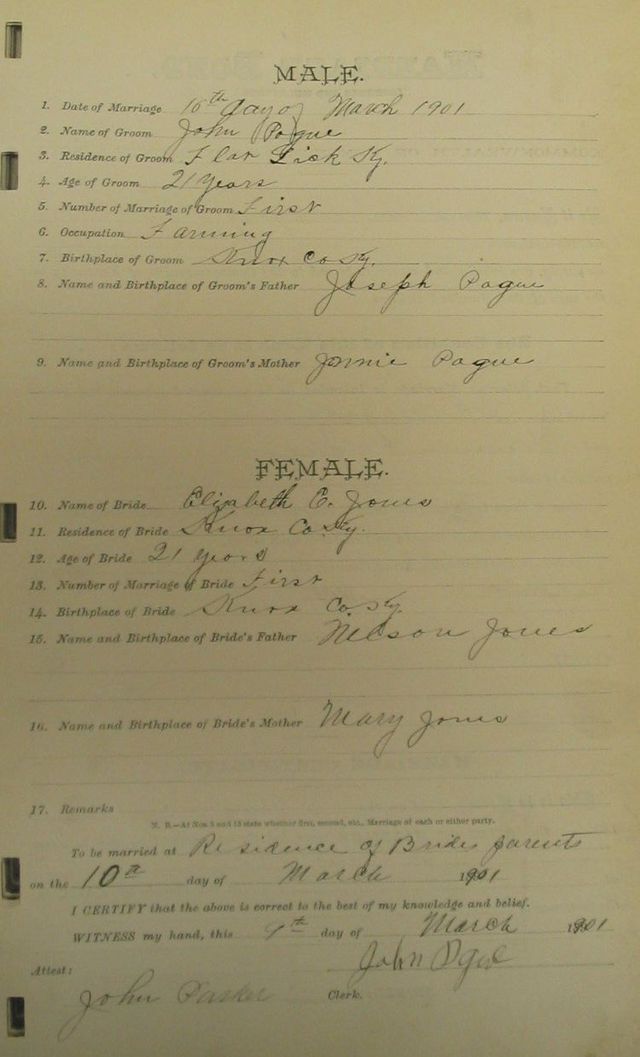 MALE.
1. Date of Marriage 10th day of March 1901
2. Name of Groom John Pogue
3. Residence of Groom Flat Lick Ky.
4. Age of Groom 21 years
5. Number of Marriage of Groom First
6. Occupation Farming
7. Birthplace of Groom Knox Co Ky.
8. Name and Birthplace of Groom's Father Joseph Pogue
9. Name and Birthplace of Groom's Mother Pogue
FEMALE.
10. Name of Bride Elizabeth E. Jones
11. Residence of Bride Knox Co. Ky.
12. Age of Bride 21 years
13. Number of Marriage of Bride First
14. Birthplace of Bride Knox Co. Ky
15. Name and Birthplace of Bride's Father Nelson Jones
16. Name and Birthplace of Bride's Mother Mary Jones
17. Remarks
N. B.—At Nos. 5 and 13 state whether first, second, etc., Marriage of each or either party.
To be married at Residence of Brides parents
on the 10th day of March 1901
I CERTIFY that the above is correct to the best of my knowledge and belief.
WITNESS my hand, this day of March 1901
John
Attest:
John Parker Clerk.